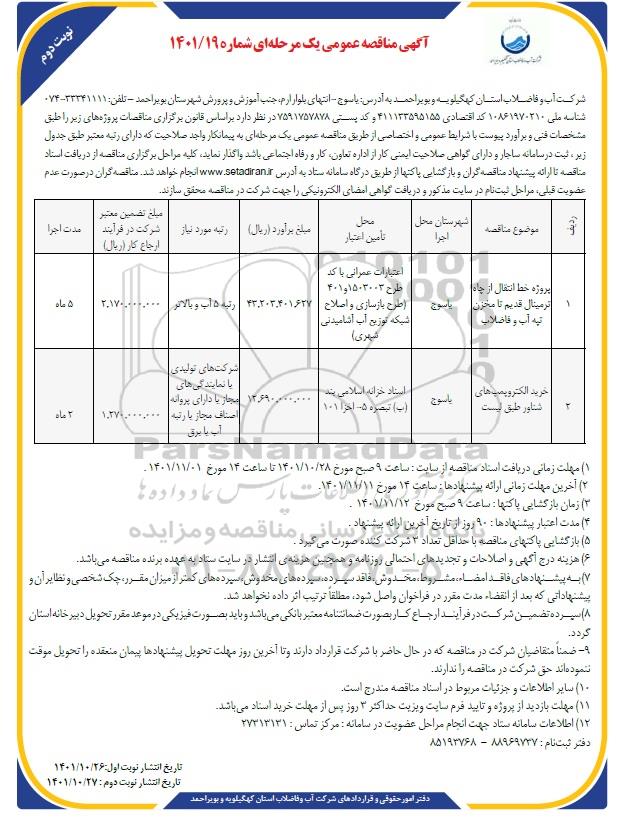 نوبت دوم
آگهی مناقصه عمومی یک مرحله‌ای شماره ۱۴۰۱/۱۹
شرکت آب و فاضلاب استان کهگیلویه و بویراحمد
شرکت آب و فاضلاب استان کهگیلویه و بویراحمد به آدرس: یاسوج - انتهای بلوار ارم، جنب آموزش و پرورش شهرستان بویراحمد – تلفن: ۳۳۳۴۱۱۱۱-۰۷۴
شناسه ملی ۱۰۸۶۱۹۷۰۲۱۰ کد اقتصادی ۴۱۱۱۳۳۵۹۵۱۵۵ و کد پستی ۷۵۹۱۷۵۷۸۷۸ در نظر دارد براساس قانون برگزاری مناقصات پروژه‌های زیر را طبق
مشخصات فنی و برآورد پیوست با شرایط عمومی و اختصاصی از طریق مناقصه عمومی یک مرحله‌ای به پیمانکار واجد صلاحیت که دارای رتبه معتبر طبق جدول
زیر ، ثبت درسامانه ساجار و دارای گواهی صلاحیت ایمنی کار از اداره تعاون، کار و رفاه اجتماعی باشد واگذار نماید، کلیه مراحل برگزاری مناقصه از دریافت اسناد
مناقصه تا ارائه پیشنهاد مناقصه‌گران و بازگشایی پاکتها از طریق درگاه سامانه ستاد به آدرس www.setadiran.ir انجام خواهد شد. مناقصه‌گران درصورت عدم
عضویت قبلی، مراحل ثبت‌نام در سایت مذکور و دریافت گواهی امضای الکترونیکی را جهت شرکت در مناقصه محقق سازند.
ردیف | موضوع مناقصه | شهرستان محل اجرا | محل تأمین اعتبار | مبلغ برآورد (ریال) | رتبه مورد نیاز | مبلغ تضمین معتبر شرکت در فرآیند ارجاع کار (ریال) | مدت اجرا
۱ | پروژه خط انتقال از چاه ترمینال قدیم تا مخزن تپه آب و فاضلاب | یاسوج | اعتبارات عمرانی با کد طرح ۱۵۰۳۰۰۳و۴۰۱ (طرح بازسازی و اصلاح شبکه توزیع آب آشامیدنی شهری) | ۴۳,۲۰۳,۴۰۱,۶۲۷ | رتبه ۵ آب و بالاتر | ۲,۱۷۰,۰۰۰,۰۰۰ | ۵ ماه
۲ | خرید الکتروپمپ‌های شناور طبق لیست | یاسوج | اسناد خزانه اسلامی بند (ب) تبصره ۵- اخزا ۱۰۱ | ۱۲,۶۹۰,۰۰۰,۰۰۰ | شرکت‌های تولیدی یا نمایندگی‌های مجاز یا دارای پروانه اصناف مجاز یا رتبه آب یا برق | ۱,۲۷۰,۰۰۰,۰۰۰ | ۲ ماه
ParsNamadData
۱) مهلت زمانی دریافت اسناد مناقصه از سایت : ساعت ۹ صبح مورخ ۱۴۰۱/۱۰/۲۸ تا ساعت ۱۴ مورخ ۱۴۰۱/۱۱/۰۱ .
۲) آخرین مهلت زمانی ارائه پیشنهادها : ساعت ۱۴ مورخ ۱۴۰۱/۱۱/۱۱.
۳) زمان بازگشایی پاکتها : ساعت ۹ صبح مورخ ۱۴۰۱/۱۱/۱۲ .
۴) مدت اعتبار پیشنهادها : ۹۰ روز از تاریخ آخرین ارائه پیشنهاد .
۵) بازگشایی پاکتهای مناقصه با حداقل تعداد ۳ شرکت کننده صورت می‌گیرد .
۶) هزینه درج آگهی و اصلاحات و تجدیدهای احتمالی روزنامه و همچنین هزینه‌ی انتشار در سایت ستاد به عهده برنده مناقصه می‌باشد.
۷) به پیشنهادهای فاقد امضاء، مشروط، مخدوش، فاقد سپرده، سپرده‌های مخدوش، سپرده‌های کمتر از میزان مقرر، چک شخصی و نظایر آن و
پیشنهاداتی که بعد از انقضاء مدت مقرر در فراخوان واصل شود، مطلقاً ترتیب اثر داده نخواهد شد.
۸) سپرده تضمین شرکت در فرآیند ارجاع کار بصورت ضمانتنامه معتبر بانکی می‌باشد و باید بصورت فیزیکی در موعد مقرر تحویل دبیرخانه استان
گردد.
۹- ضمناً متقاضیان شرکت در مناقصه که در حال حاضر با شرکت قرارداد دارند وتا آخرین روز مهلت تحویل پیشنهادها پیمان منعقده را تحویل موقت
ننموده‌اند حق شرکت در مناقصه را ندارند.
۱۰) سایر اطلاعات و جزئیات مربوط در اسناد مناقصه مندرج است.
۱۱) مهلت بازدید از پروژه و تایید فرم سایت ویزیت حداکثر ۳ روز پس از مهلت خرید اسناد می‌باشد.
۱۲) اطلاعات سامانه ستاد جهت انجام مراحل عضویت در سامانه : مرکز تماس : ۲۷۳۱۳۱۳۱
دفتر ثبت‌نام : ۸۸۹۶۹۷۳۷ – ۸۵۱۹۳۷۶۸
تاریخ انتشار نوبت اول: ۱۴۰۱/۱۰/۲۶
تاریخ انتشار نوبت دوم : ۱۴۰۱/۱۰/۲۷
دفتر امورحقوقی و قراردادهای شرکت آب وفاضلاب استان کهگیلویه و بویراحمد